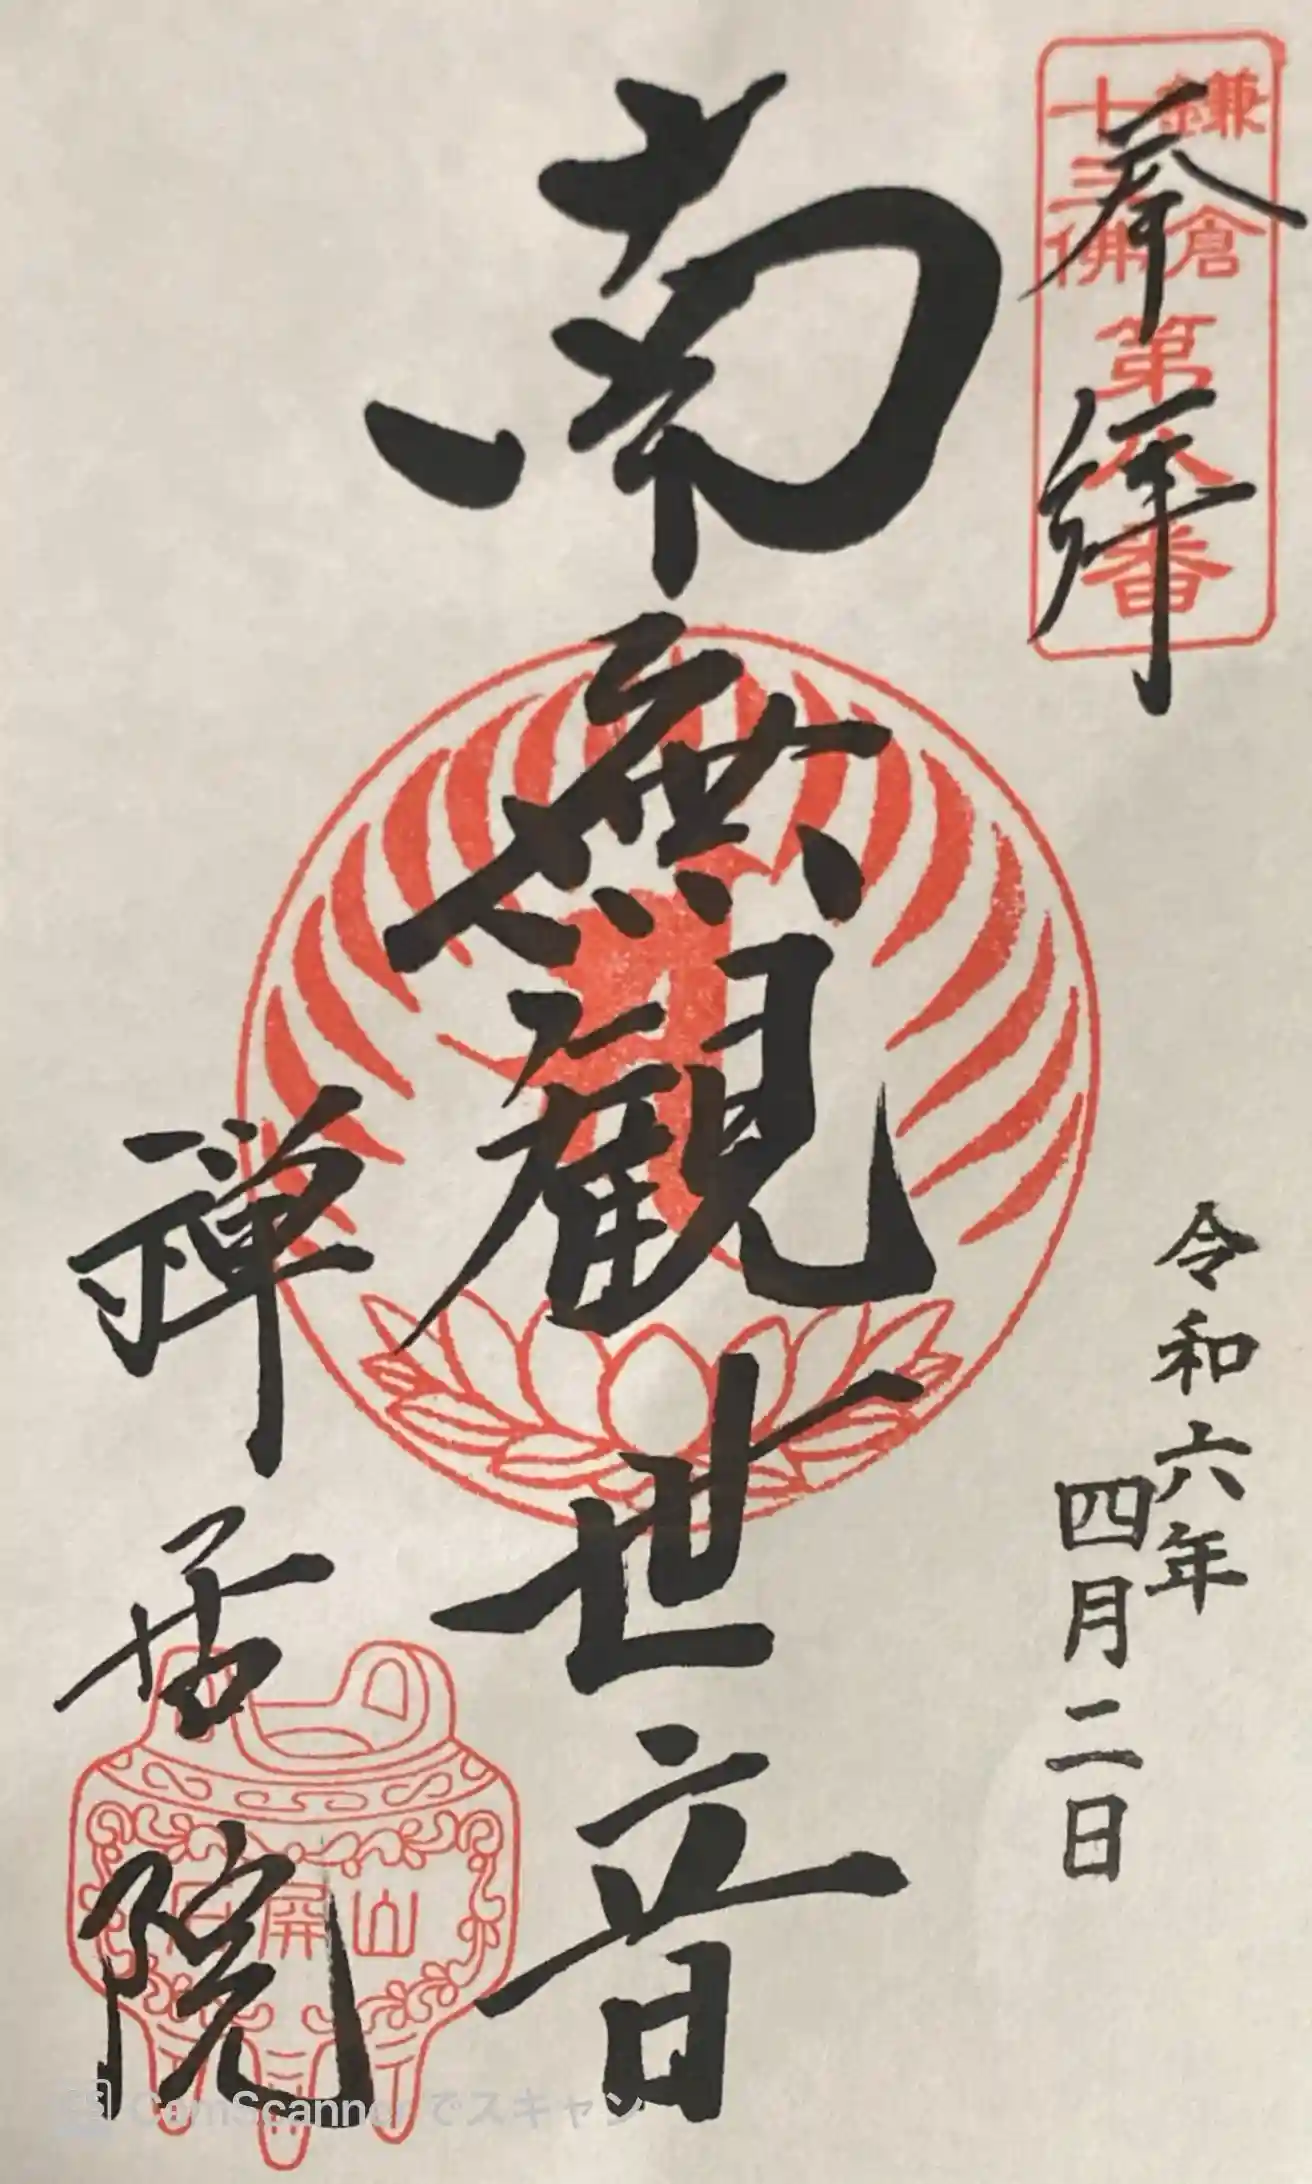 奉拝
鎌倉
十三佛
第八番
令和六年
四月二日
南無観世音
禅居院
山屏
CamScannerでスキャン